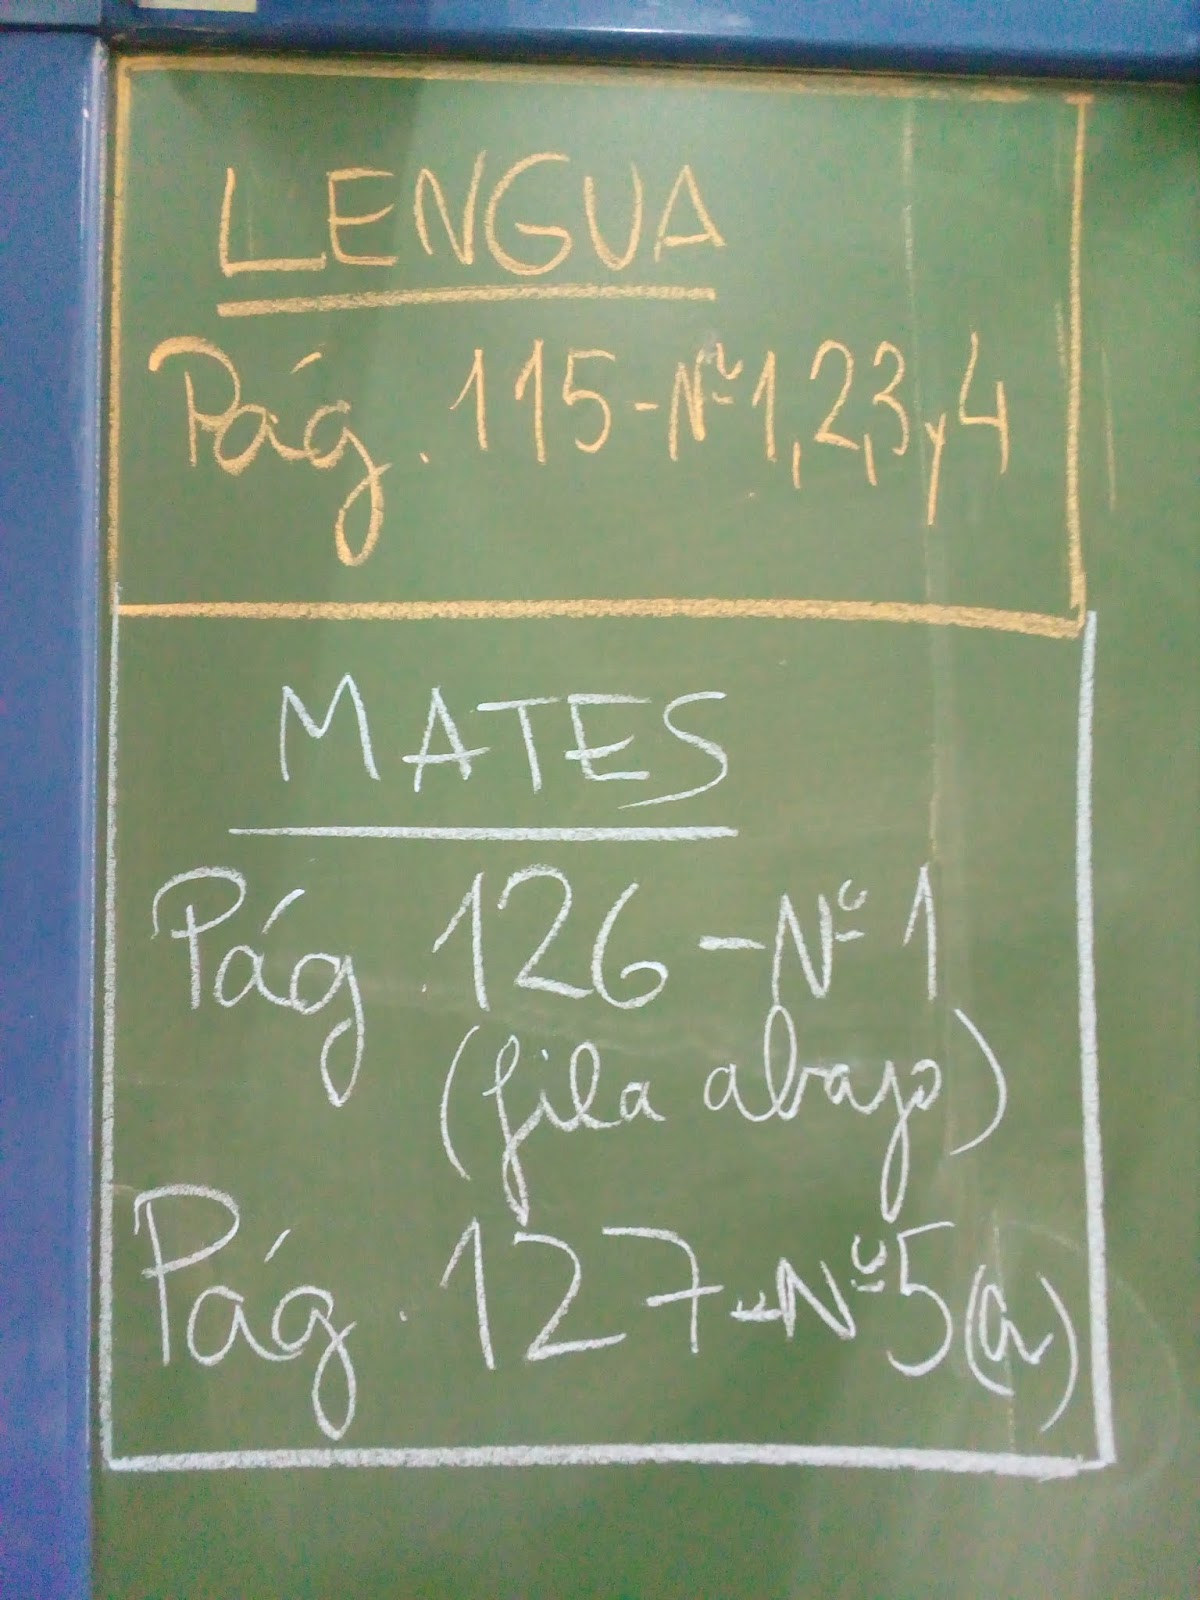 LENGUA
Pág. 115-Nº1,2,3 y 4
MATES
Pág. 126-Nº1
(fila abajo)
Pág. 127-Nº5(a)